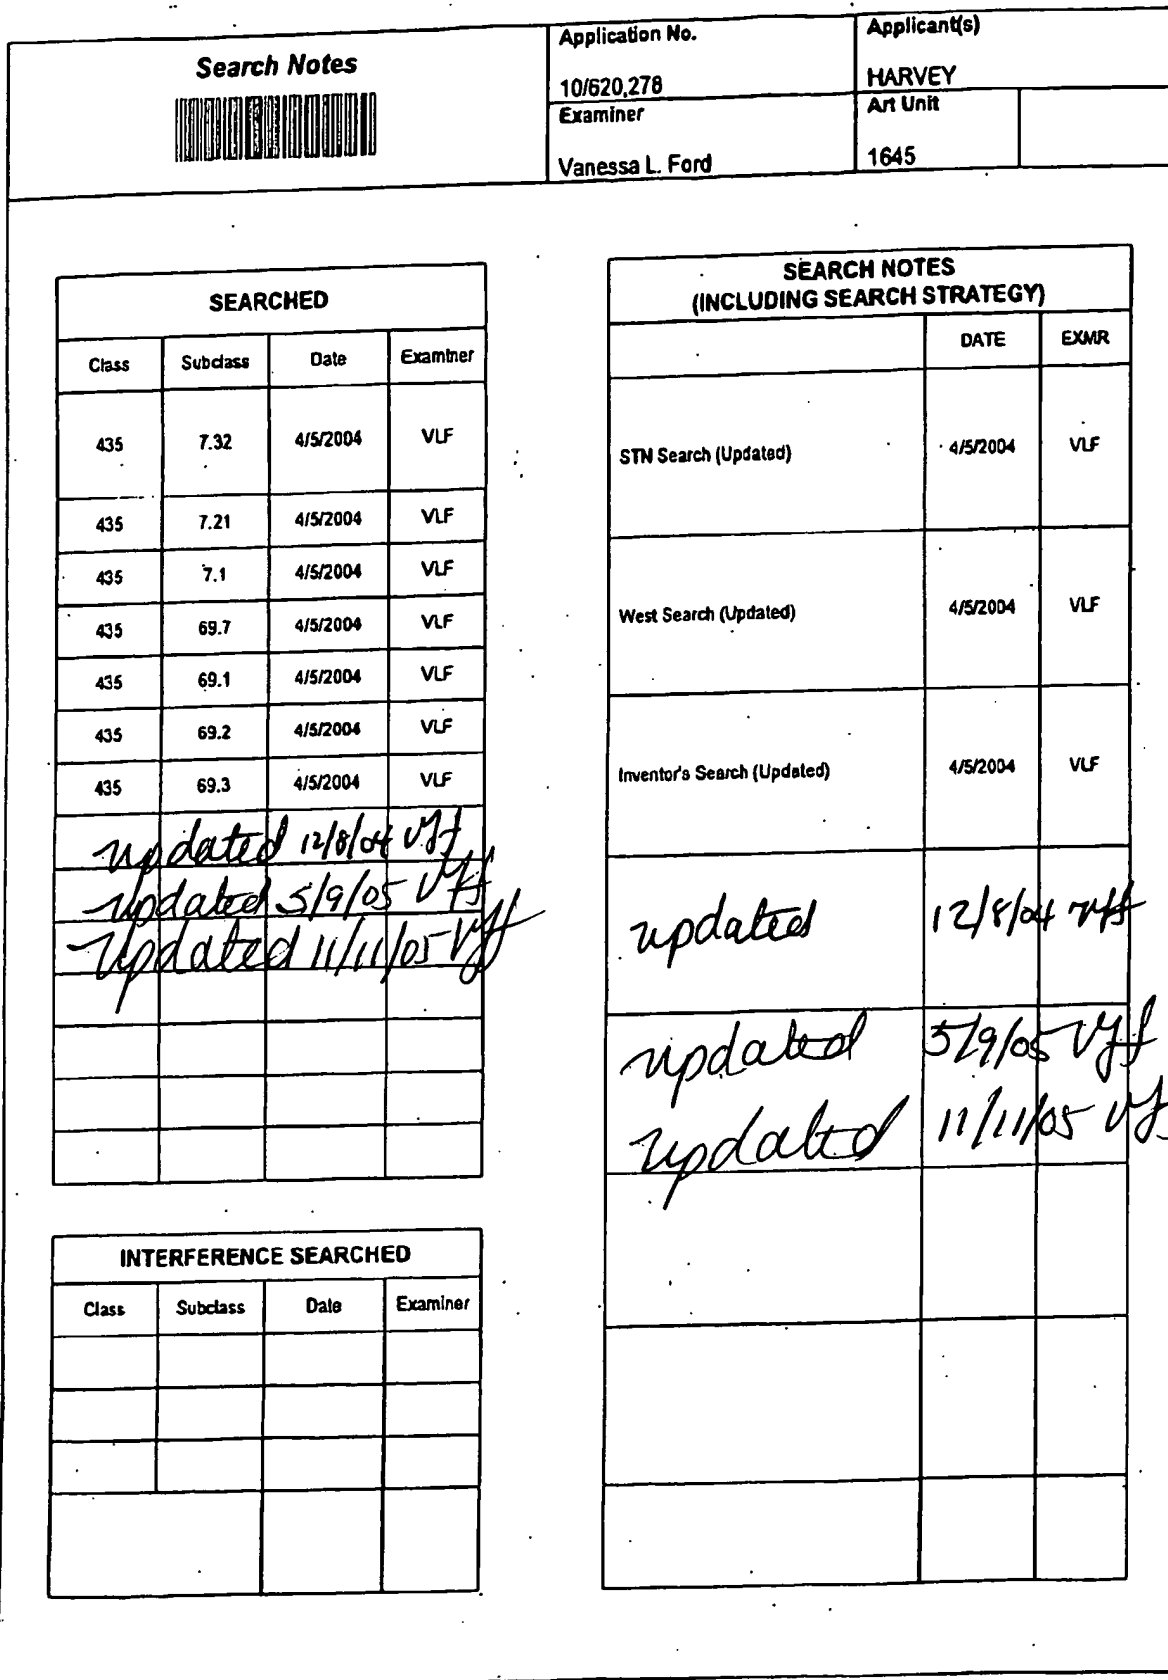 Search Notes
Application No.
10/620,278
Applicant(s)
HARVEY
Examiner
Vanessa L. Ford
Art Unit
1645
SEARCHED
Class Subclass Date Examiner
435 7.32 4/5/2004 VLF
435 7.21 4/5/2004 VLF
435 7.1 4/5/2004 VLF
435 69.7 4/5/2004 VLF
435 69.1 4/5/2004 VLF
435 69.2 4/5/2004 VLF
435 69.3 4/5/2004 VLF
updated 12/8/04 vlf
updated 5/9/05 vlf
Updated 11/11/05 vlf
INTERFERENCE SEARCHED
Class Subclass Date Examiner
SEARCH NOTES
(INCLUDING SEARCH STRATEGY)
DATE EXMR
STN Search (Updated) 4/5/2004 VLF
West Search (Updated) 4/5/2004 VLF
Inventor's Search (Updated) 4/5/2004 VLF
updated 12/8/04 vlf
updated 5/9/05 vlf
updated 11/11/05 vlf